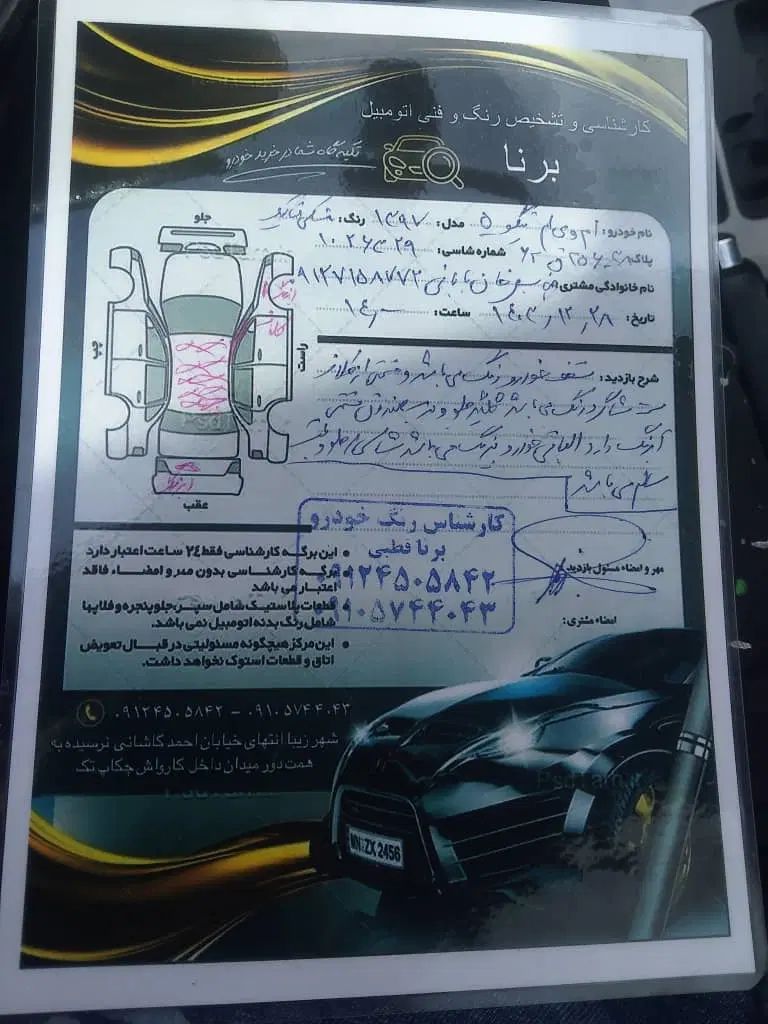 کارشناسی و تشخیص رنگ و فنی اتومبیل
برنا
تکیه گاه شما در خرید خودرو
نام خودرو: ام وی ام تیگو ۵ مدل: ۱۳۹۷ رنگ: مشکی
پلاک: شماره شاسی: ۱۰۲۶۳۲۹
نام خانوادگی مشتری: ۰۹۱۲۷۱۵۸۷۷۲
تاریخ: ۱۴۰۳/۱۲/۲۸ ساعت:
جلو
راست
چپ
عقب
شرح بازدید: سقف خودرو رنگ می باشد و قسمتی از گلگیر
رنگ می باشد گلگیر جلو و
رنگ دارد الباقی خودرو بیرنگ می باشد شاسی از جلو و عقب
سالم می باشد
کارشناس رنگ خودرو
برنا قطبی
۰۹۱۲۴۵۰۵۸۴۲
۰۹۱۰۵۷۴۴۰۴۳
مهر و امضاء مسئول بازدید:
امضاء مشتری:
• این برگه کارشناسی فقط ۲۴ ساعت اعتبار دارد
• برگه کارشناسی بدون مهر و امضاء فاقد
اعتبار می باشد
• قطعات پلاستیک شامل سپر، جلو پنجره و فلاپها
شامل رنگ بدنه اتومبیل نمی باشد.
• این مرکز هیچگونه مسئولیتی در قبال تعویض
اتاق و قطعات استوک نخواهد داشت.
۰۹۱۲۴۵۰۵۸۴۲ - ۰۹۱۰۵۷۴۴۰۴۳
شهر زیبا انتهای خیابان احمد کاشانی نرسیده به
همت دور میدان داخل کارواش جکاپ تک
MN:ZX 2456